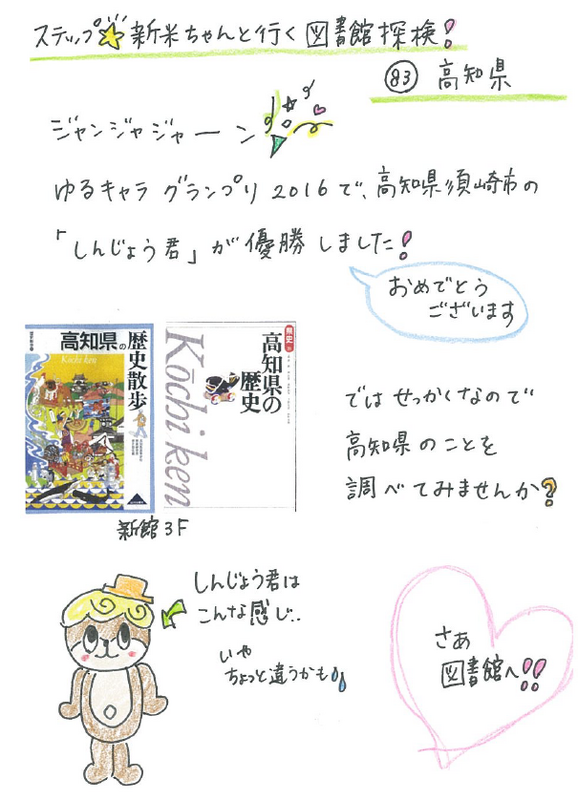 ステップ☆新米ちゃんと行く図書館探検!
83 高知県
ジャンジャジャーン
ゆるキャラグランプリ2016で、高知県須崎市の
「しんじょう君」が優勝しました!
おめでとう
ございます
高知県の歴史散歩
Kōchi ken
高知県の歴史
県史
Kōchi ken
では せっかくなので
高知県のことを
調べてみませんか?
新館3F
しんじょう君は
こんな感じ..
いや
ちょっと違うかも
さあ
図書館へ!!